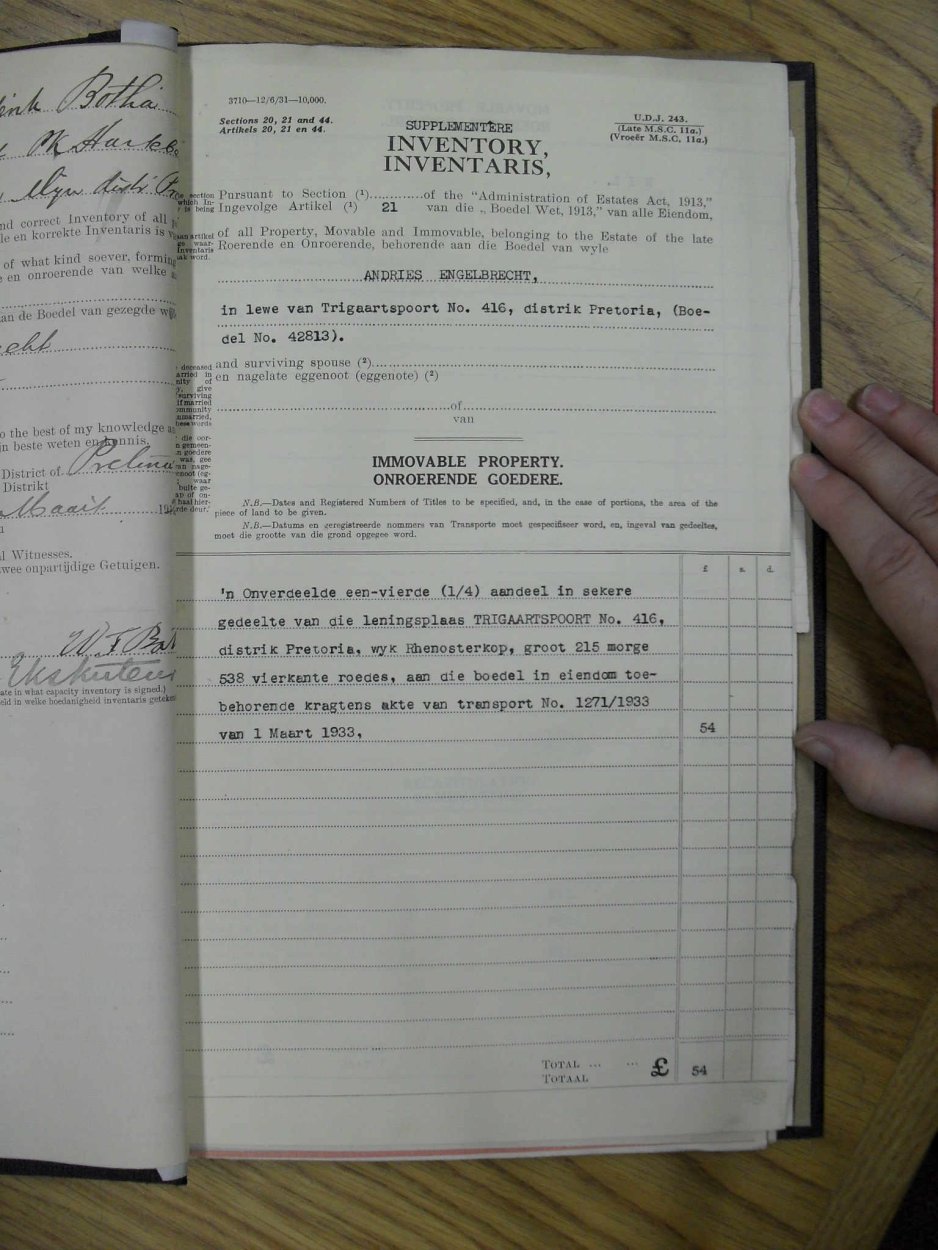 Botha
nd correct Inventory of all
le en korrekte Inventaris is
of what kind soever, forming
e en onroerende van welke
an de Boedel van gezegde
o the best of my knowledge
n beste weten en kennis.
District of Pretoria
Distrikt
l Witnesses.
wee onpartijdige Getuigen.
W. F. Bot
Eksekuteur
ate in what capacity inventory is signed.)
eid in welke hoedanigheid inventaris geteken
3710—12/6/31—10,000.
Sections 20, 21 and 44.
Artikels 20, 21 en 44.
U.D.J. 243.
(Late M.S.C. 11a.)
(Vroeër M.S.C. 11a.)
SUPPLEMENTÊRE
INVENTORY,
INVENTARIS,
Pursuant to Section (¹)............of the "Administration of Estates Act, 1913,"
Ingevolge Artikel (¹) 21 van die „ Boedel Wet, 1913," van alle Eiendom,
of all Property, Movable and Immovable, belonging to the Estate of the late
Roerende en Onroerende, behorende aan die Boedel van wyle
ANDRIES ENGELBRECHT,
in lewe van Trigaartspoort No. 416, distrik Pretoria, (Boe-
del No. 42813).
and surviving spouse (²)
en nagelate eggenoot (eggenote) (²)
of
van
IMMOVABLE PROPERTY.
ONROERENDE GOEDERE.
N.B.—Dates and Registered Numbers of Titles to be specified, and, in the case of portions, the area of the
piece of land to be given.
N.B.—Datums en geregistreerde nommers van Transporte moet gespecifiseer word, en, ingeval van gedeeltes,
moet die grootte van die grond opgegee word.
£ s. d.
'n Onverdeelde een-vierde (1/4) aandeel in sekere
gedeelte van die leningsplaas TRIGAARTSPOORT No. 416,
distrik Pretoria, wyk Rhenosterkop, groot 215 morge
538 vierkante roedes, aan die boedel in eiendom toe-
behorende kragtens akte van transport No. 1271/1933
van 1 Maart 1933, 54
TOTAL ... ... £ 54
TOTAAL